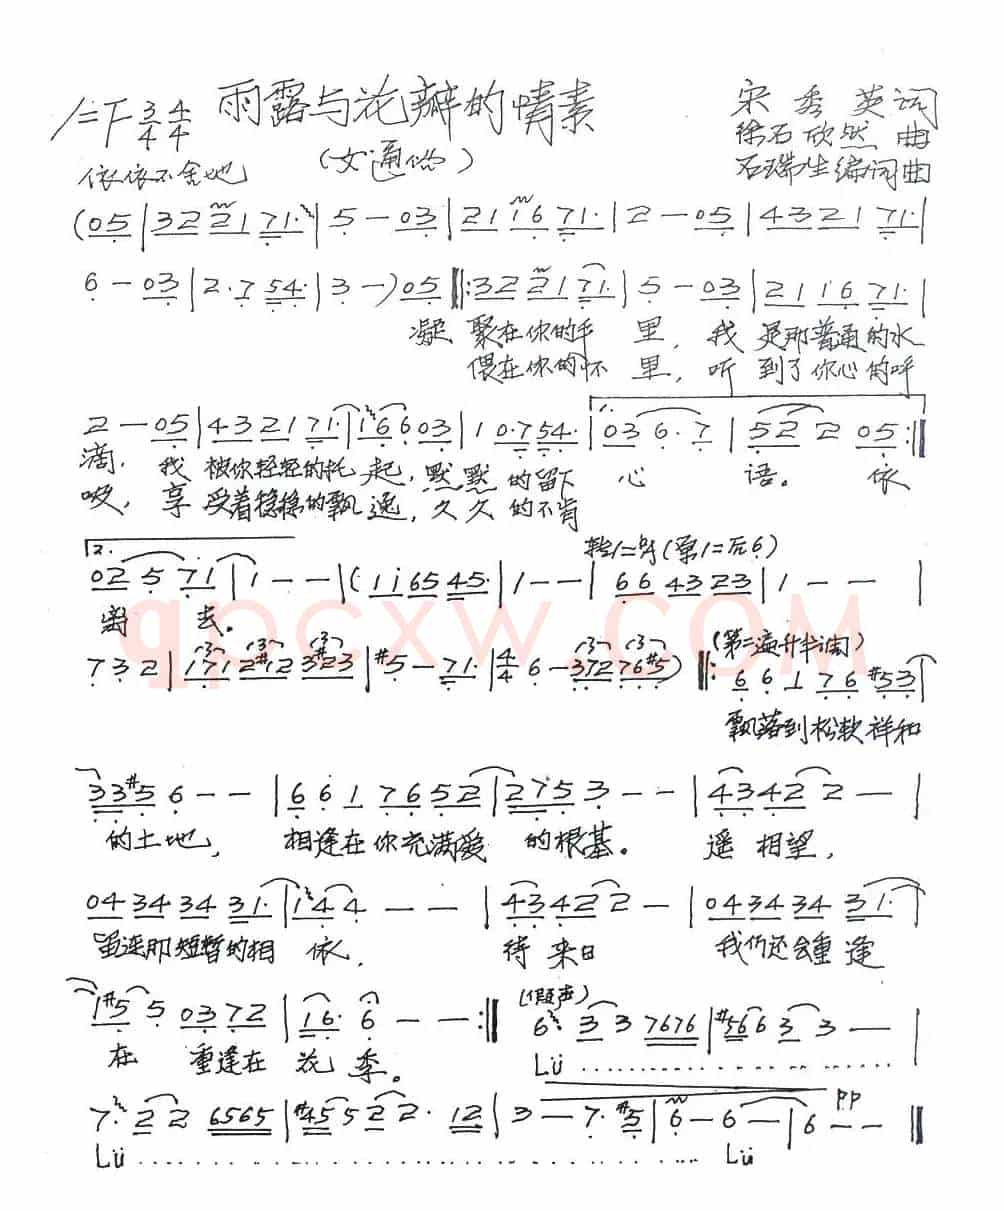 1=F 3/4 4/4 雨露与花瓣的情素
宋秀英词
徐石欣然曲
石瑞生编词曲
(女通俗)
依依不舍地
(05|32 21 71·|5-03|21 16 71·|2-05|43 21 71·|
6-03|2·7 54·|3-)05‖:32 21 71·|5-03|21 16 71·|
凝聚在你的手里,我是那普通的水
偎在你的怀里,听到了你心的呼
2-05|43 21 71·|166 03|1 0·7 54·|1. 03 6·7|5 2 2 05:‖
滴,我被你轻轻的托起,默默的留下心语。依
吸,享受着稳稳的飘逸,久久的不肯
2. 02 5 71|1--|(1i 65 45·|1--|66 43 23|1--|
转1=bA(第1=后6)
离去。
732|171 2#12 3#23|#5-71·|4/4 6-372 76#5)‖:6 6 1 76 #53|
(第二遍升半调)
飘落到松软祥和
33#5 6--|66 1 76 52|275 3--|43 42 2-|
的土地,相逢在你充满爱的根基。遥相望,
04 34 34 31·|14 4--|43 42 2-|04 34 34 31·|
留连那短暂的相依,待来日我仍还会重逢
1#5 5 03 72|16· 6--:‖6 3 3 7676|#566 3 3-|
(假声)
在重逢在花季。Lü
7 2 2 6565|#455 2 2· 12|3-7·#5|6-6-|6--‖
pp
Lü Lü
qpcxw.COM